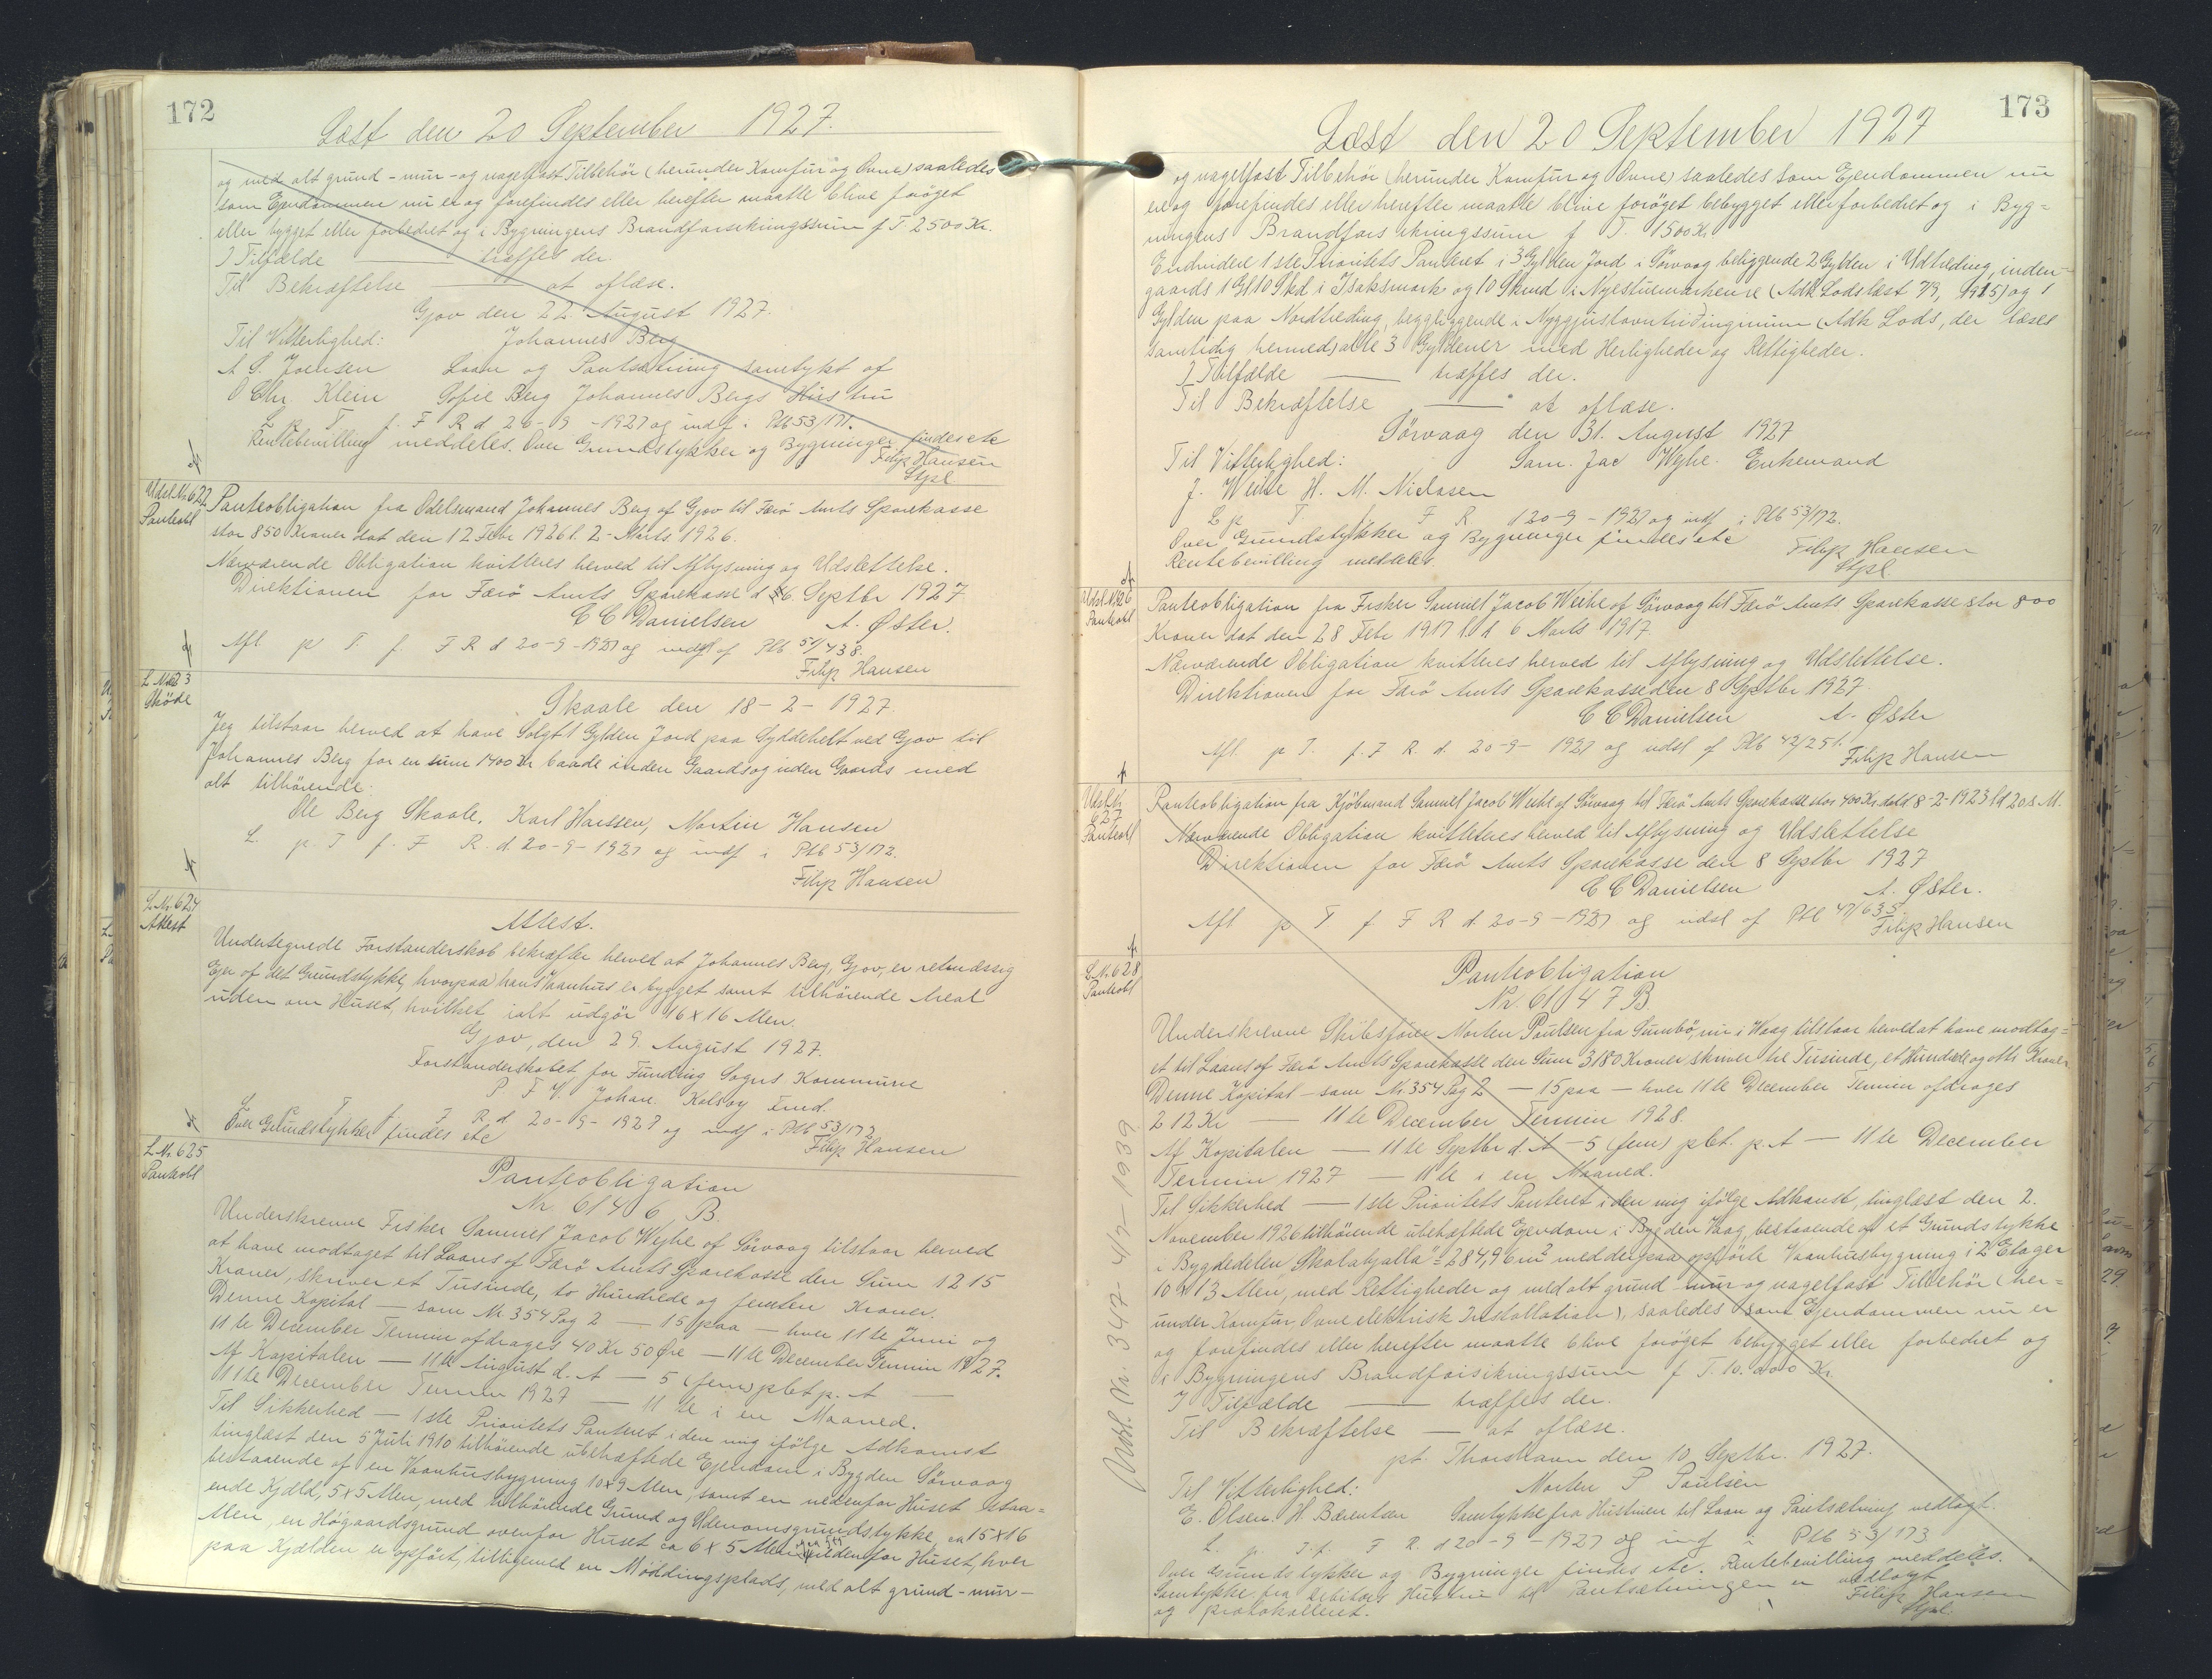 172
Læst den 20 September 1927.
og med alt grund - mur - og nagelfast Tilbehör (herunder Komfur og Ovne) saaledes
som Ejendommen nu er og forefindes eller herefter maatte blive foröget
eller bygget eller forbedret og i Bygningens Brandforsikringssum f T. 2500 Kr.
I Tilfælde — træffes der.
Til Bekræftelse — at aflæse.
Gjov den 22 August 1927.
Til Vitterlighed: Johannes Berg
A S. Joensen Laan og Pantsætning samtykt af
O Chr. Klein Sofie Berg Johannes Bergs Hustru
L p T. f. F R d 20-9-1927 og indf i Ptb 53/171.
Rentebevilling meddeles. Over Grundstykker og Bygninger findes etc
Filip Hansen
Stpl
Udsl. Nr. 622
Panteobl
Panteobligation fra Odelsmand Johannes Berg af Gjov til Færö Amts Sparekasse
stor 850 Kroner dat den 12 Febr 1926 l. 2 - Marts 1926.
Nærværende Obligation kvitteres herved til Aflysning og Udslettelse.
Direktionen for Færö Amts Sparekasse d 16. Septbr 1927
C C Danielsen A. Øster.
Afl p T. f. F R d 20-9-1927 og udsl af Ptb 51/438.
Filip Hansen
L Nr 623
Sköde
Skaale den 18-2-1927.
Jeg tilstaar herved at have Solgt 1 Gylden Jord paa Syddehelt ved Gjov til
Johannes Berg for en sum 1400 Kr baade inden Gaards og uden Gaards med
alt tilhörende.
Ole Berg Skaale. Karl Hanssen, Martin Hansen
L. p. T f. F R. d. 20-9-1927 og indf i Ptb 53/172.
Filip Hansen
L Nr. 624
Attest
Attest.
Undertegnede Forstanderskab bekræfter herved at Johannes Berg, Gjov, er retmæssig
Ejer af det Grundstykke, hvorpaa hans Vaanhus er bygget samt tilhörende Areal
uden om Huset, hvilket ialt udgör 16 x 16 Alen.
Gjov, den 29. August 1927.
Forstanderskabet for Funding Sogns Kommune
P. F. V. Johan. Kolsöy Fmd.
L p T f. F R. d 20-9-1927 og indf i Ptb 53/172
Over Grundstykket findes etc Filip Hansen
L. Nr. 625
Panteobl
Panteobligation
Nr. 6146 B.
Underskrevne Fisker Samuel Jacob Wejhe af Sörvaag tilstaar herved
at have modtaget til Laans af Færö Amts Sparekasse den Sum 1215
Kroner, skriver et Tusinde, to Hundrede og femten Kroner.
Denne Kapital — som Nr. 354 Pag 2 — 15 paa — hver 11te Juni og
11te December Termin afdrages 40 Kr 50 Øre — 11te December Termin 1927.
Af Kapitalen — 11te August d. A — 5 (fem) pCt p. A —
11te December Termin 1927 — 11te i en Maaned.
Til Sikkerhed — 1ste Prioritets Panteret i den mig ifölge Adkomst
tinglæst den 5 Juli 1910 tilhörende ubehæftede Ejendom i Bygden Sörvaag
bestaaende af en Vaanhusbygning 10 x 9 Alen, samt en nedenfor Huset staa=
ende Kjæld, 5 x 5 Alen, med tilhörende Grund og Udenomsgrundstykke, ca 15 x 16
Alen, en Högaardsgrund ovenfor Huset ca 6 x 5 Alen udenfor Huset, hver
paa Kjælden er opfört, tilligemed en Möddingsplads, med alt grund - mur -
173
Læst den 20 September 1927
og nagelfast Tilbehör (herunder Komfur og Ovne) saaledes som Ejendommen nu
er og forefindes eller herefter maatte blive foröget bebygget eller forbedret og i Byg=
ningens Brandforsikringssum f T. 1500 Kr
Endvidere 1ste Prioritets Panteret i 3 Gylden Jord i Sörvaag beliggende 2 Gylden i Udtræding, inden-
gaards 1 Gl 10 Skd i Isaksmark og 10 Skind i Nyestuemarkense (Adk Lods læst 7/9, 1915) og 1
Gylden paa Nordtræding, beggliggende i Nyggjustovutriðinginum (Adk Lods, der læses
samtidig hermed) alle 3 Gyldener med Herligheder og Rettigheder.
I Tilfælde — træffes der.
Til Bekræftelse — at aflæse.
Sörvaag den 31. August 1927
Til Vitterlighed: Sam. Jac Wejhe. Enkemand
J. Weihe H. M. Niclasen
L p T. f F R d 20-9-1927 og indf i Ptb 53/172.
Over Grundstykker og Bygninger findes etc Filip Hansen
Rentebevilling meddeles. Stpl.
Udsl. Nr 626
Panteobl
Panteobligation fra Fisker Samuel Jacob Weihe af Sörvaag til Færö Amts Sparekasse stor 800
Kroner dat den 28 Febr 1917 l. d 6 Marts 1917.
Nærværende Obligation kvitteres herved til Aflysning og Udslettelse.
Direktionen for Færö Amts Sparekasse den 8 Septbr 1927.
C C Danielsen A. Øster
Afl p T. f. F R. d. 20-9-1927 og udsl af Ptb 42/251.
Filip Hansen
Udsl. Nr.
627
Panteobl
Panteobligation fra Kjöbmand Samuel Jacob Weihe af Sörvaag til Færö Amts Sparekasse stor 400 Kr. dat d 8-2-1923 l d 20 s. M.
Nærværende Obligation kvitteres herved til Aflysning og Udslettelse
Direktionen for Færö Amts Sparekasse den 8 Septbr 1927
C C Danielsen A. Øster.
Afl p T f F R d 20-9-1927 og udsl af Ptb 47/635
Filip Hansen
L. Nr. 628
Panteobl
Panteobligation
Nr. 6147 B
Underskrevne Skibsförer Morten Poulsen fra Sumbö, nu i Waag tilstaar herved at have modtag=
et til Laans af Færö Amts Sparekasse den Sum 3180 Kroner skriver tre Tusinde, et Hundrede og otti Kroner.
Denne Kapital - som Nr. 354 Pag 2 — 15 paa — hver 11te December Termin afdrages
212 Kr — 11te December Termin 1928.
Af Kapitalen — 11te Septbr d. A — 5 (fem) pCt. p. A — 11te December
Termin 1927 — 11te i en Maaned.
Til Sikkerhed — 1ste Prioritets Panteret i den mig ifölge Adkomst, tinglæst den 2.
November 1926 tilhörende ubehæftede Ejendom i Bygden Vaag, bestaaende af et Grundstykke
i Bygdedelen "Skalabjalla" = 284,96 m² med derpaa opförte Vaanhusbygning i 2 Etager
10 x 13 Alen, med Rettigheder og med alt grund - mur og nagelfast Tilbehör (her=
under Komfur, Ovne elektrisk Installation), saaledes som Ejendommen nu er
og forefindes eller herefter maatte blive foröget bebygget eller forbedret og
i Bygningens Brandforsikringssum f T. 10.000 Kr.
I Tilfælde — træffes der.
Til Bekræftelse — at aflæse.
pt. Thorshavn den 10. Septbr. 1927.
Til Vitterlighed: Morten P Poulsen
E. Olsen. H Bærentsen Samtykke fra Hustruen til Laan og Pantsætning vedlagt.
L. p. T. f. F R. d 20-9-1927 og inf i Ptb 53/173
Over Grundstykker og Bygninger findes etc. Rentebevilling meddeles.
Samtykke fra Debitors Hustru til Pantsætningen er vedlagt
og protokolleret. Filip Hansen
Stpl.
Modt. Nr. 347 - 4/7 - 1939